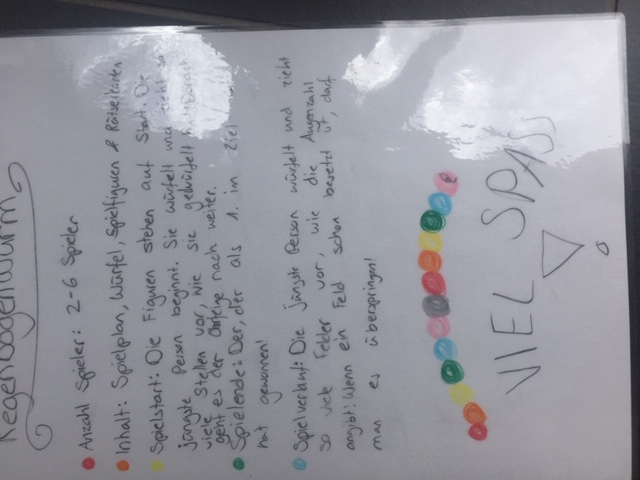 Regenbogenwurm
Anzahl Spieler: 2-6 Spieler
Inhalt: Spielplan, Würfel, Spielfiguren & Rätselkarten
Spielstart: Die Figuren stehen auf Start. Die
jüngste Person beginnt. Sie würfelt und zieht so
viele Stellen vor, wie sie gewürfelt hat. Danach
geht es der Reihe nach weiter.
Spielende: Der, der als 1. im Ziel
hat gewonnen!
Spielverlauf: Die jüngste Person würfelt und zieht
so viele Felder vor, wie die Augenzahl
angibt! Wenn ein Feld schon besetzt ist, darf
man es überspringen!
VIEL SPASS